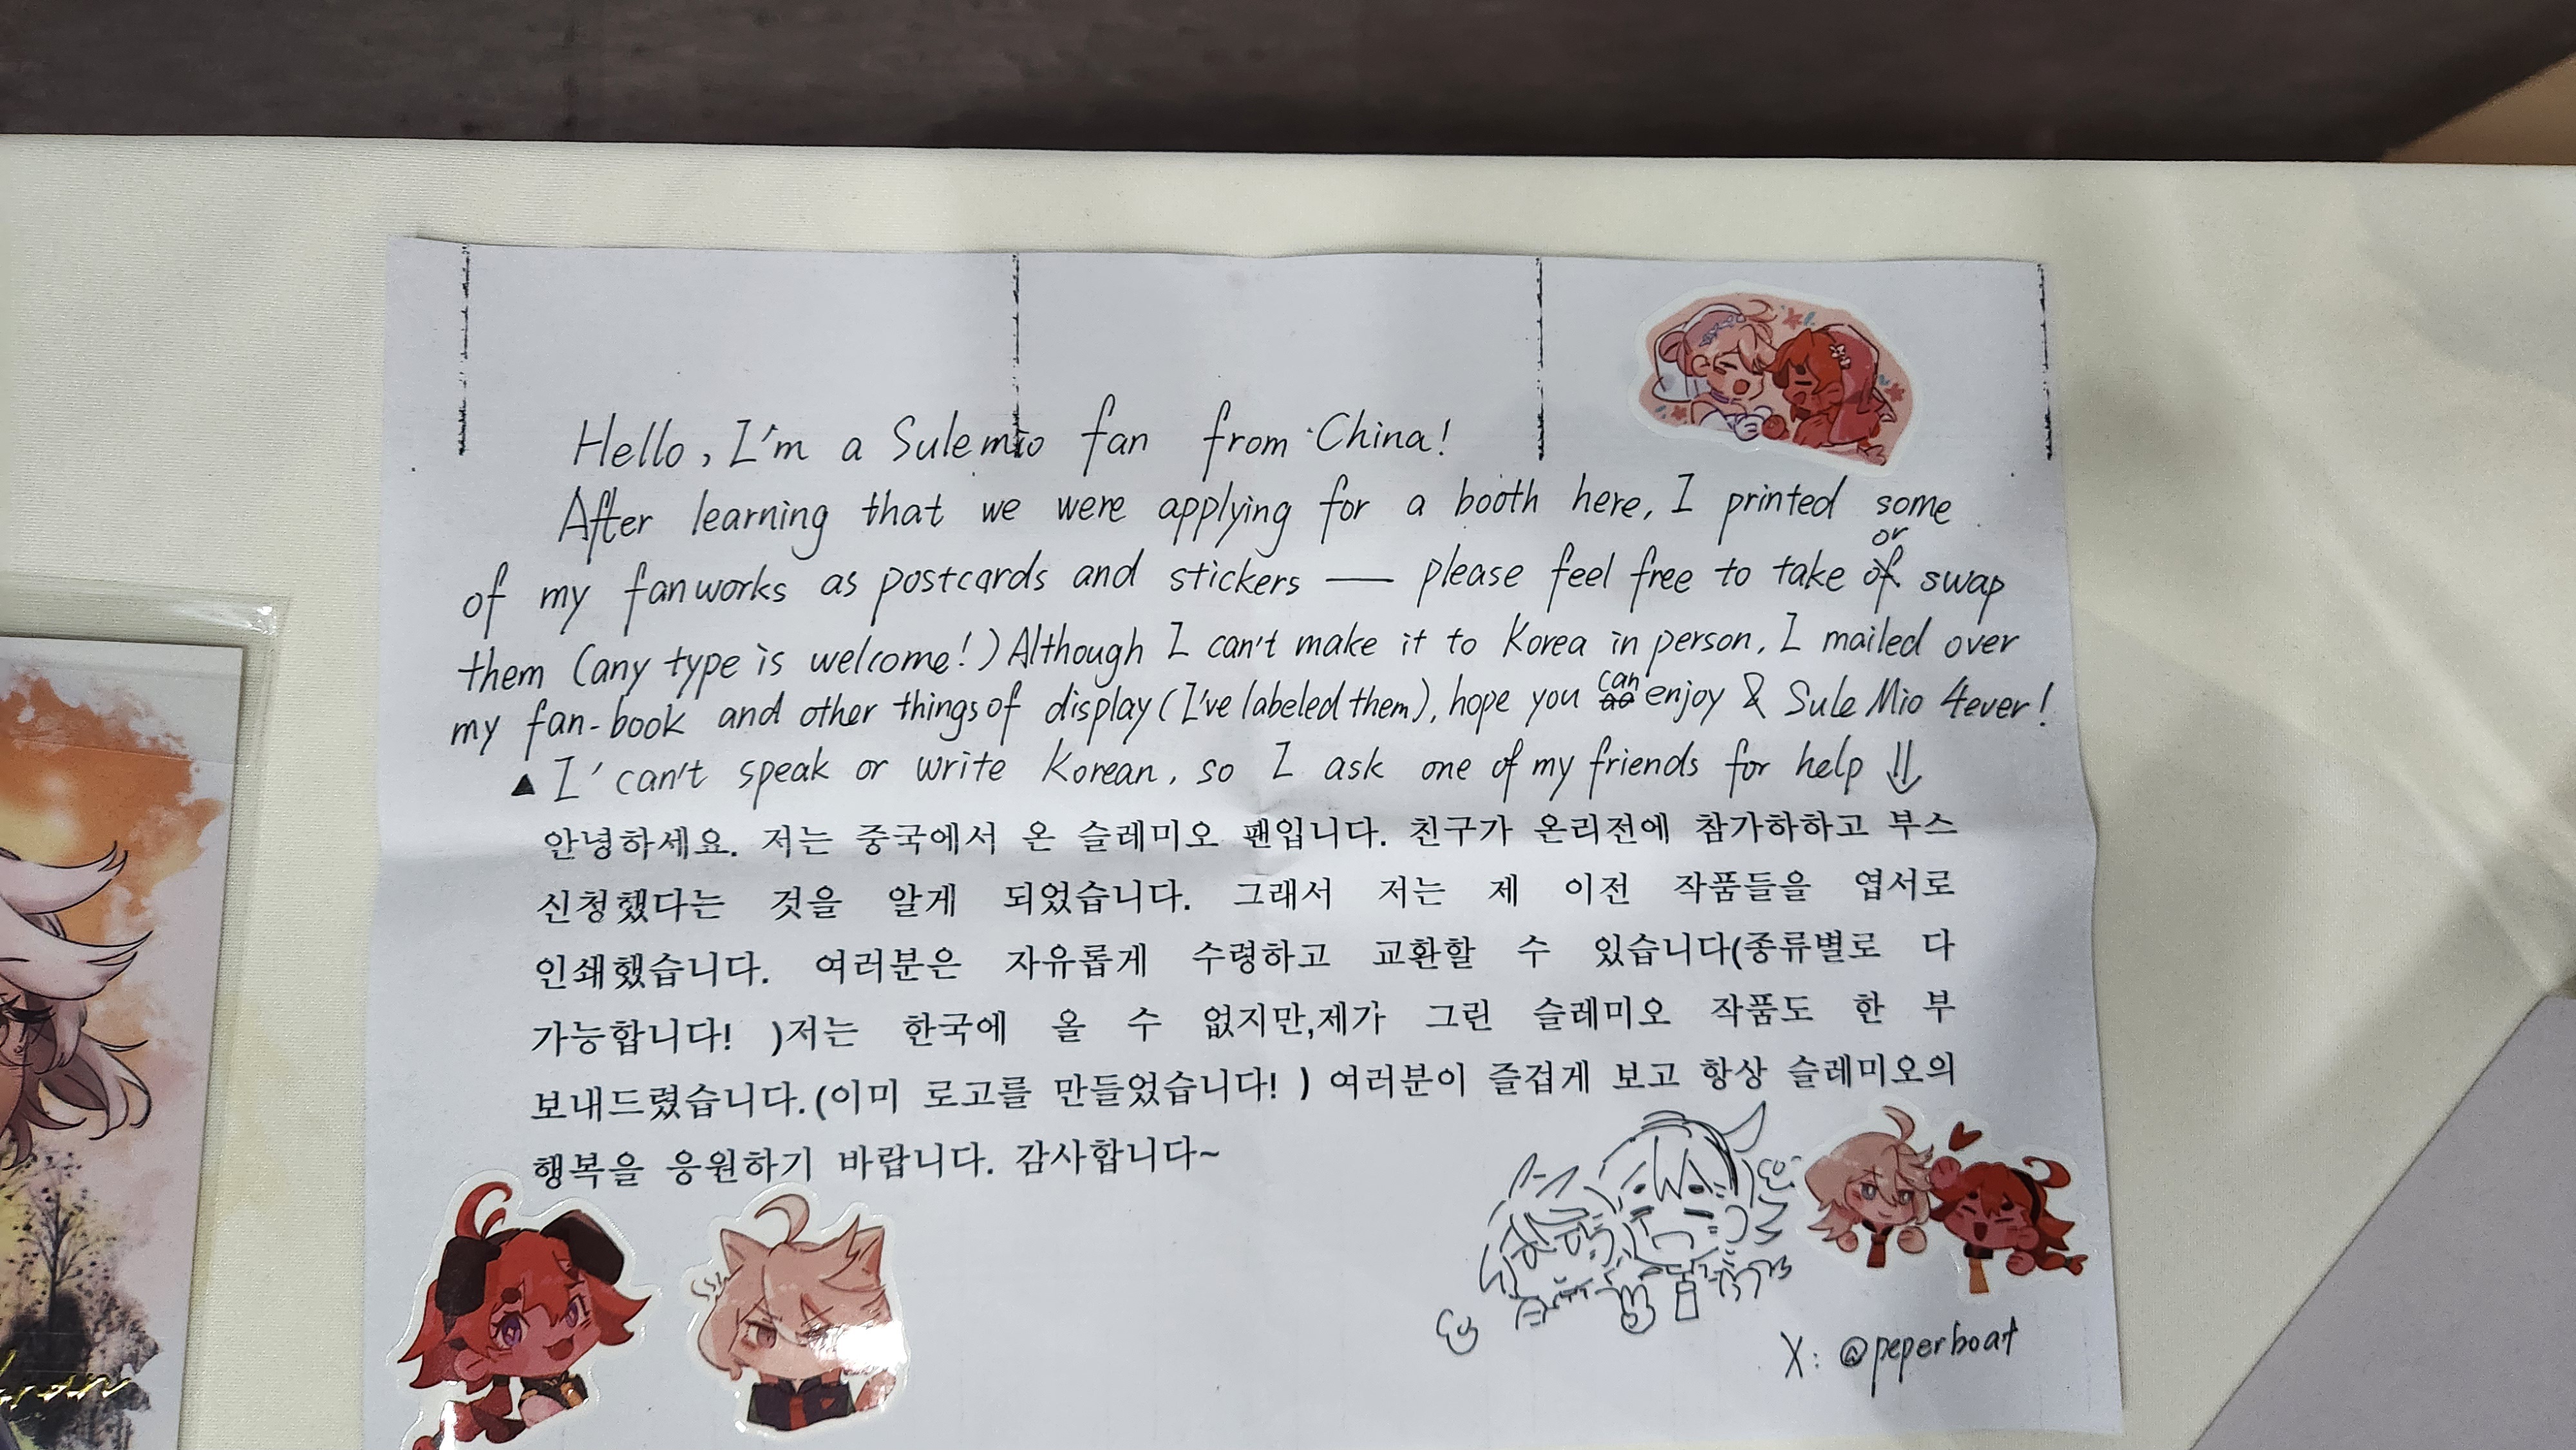 Hello, I'm a Sulemio fan from China!
After learning that we were applying for a booth here, I printed some
or
of my fanworks as postcards and stickers — please feel free to take of swap
them (any type is welcome!) Although I can't make it to Korea in person, I mailed over
can
my fan-book and other things of display (I've labeled them), hope you enjoy & SuleMio 4ever!
▲ I' can't speak or write Korean, so I ask one of my friends for help ⇓
안녕하세요. 저는 중국에서 온 슬레미오 팬입니다. 친구가 온리전에 참가하하고 부스
신청했다는 것을 알게 되었습니다. 그래서 저는 제 이전 작품들을 엽서로
인쇄했습니다. 여러분은 자유롭게 수령하고 교환할 수 있습니다(종류별로 다
가능합니다! )저는 한국에 올 수 없지만,제가 그린 슬레미오 작품도 한 부
보내드렸습니다.(이미 로고를 만들었습니다! ) 여러분이 즐겁게 보고 항상 슬레미오의
행복을 응원하기 바랍니다. 감사합니다~
X: @peperboat